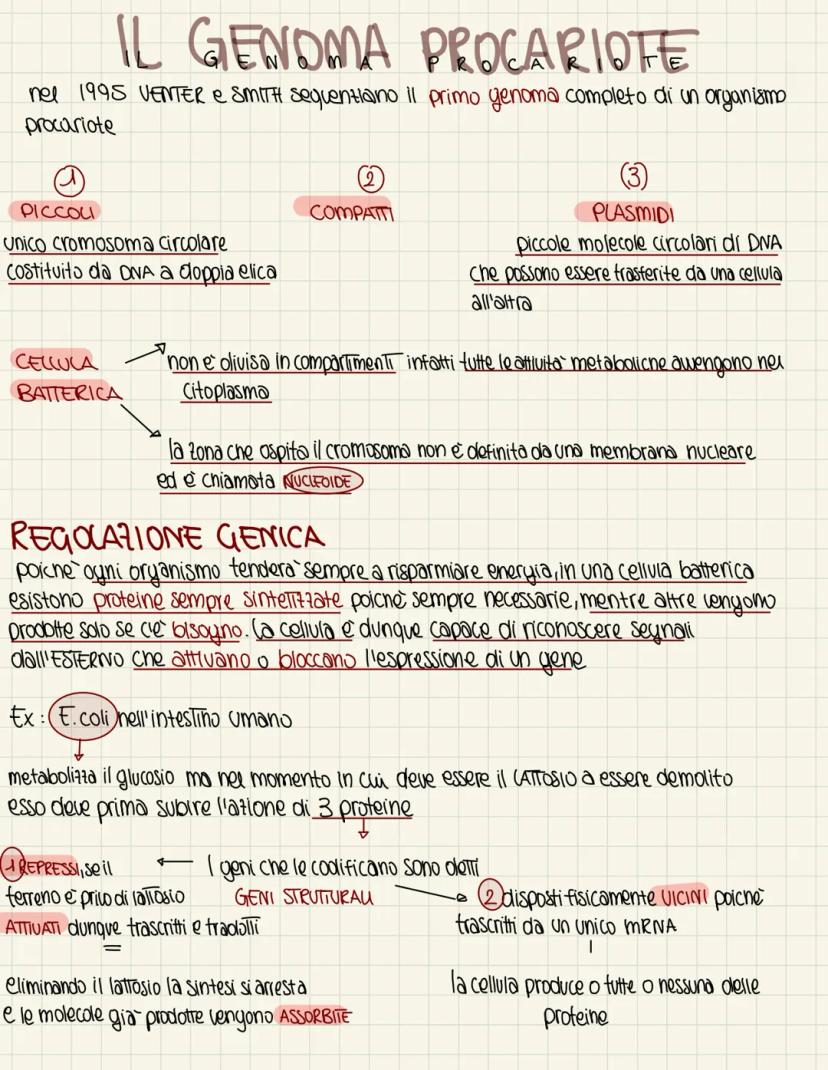 IL GENOMA PROCARIOTE
IL GENOMA PROCARIOTE
nel 1995 VENTER e SMITH sequenziano il primo genoma completo di un organismo
procariote
1
PICCOLI
unico cromosoma circolare
costituito da DNA a doppia elica
2
COMPATTI
3
PLASMIDI
piccole molecole circolari di DNA
che possono essere trasferite da una cellula
all'altra
CELLULA
BATTERICA
non è divisa in compartimenti infatti tutte le attività metaboliche avvengono nel
citoplasma
la zona che ospita il cromosoma non è definita da una membrana nucleare
ed è chiamata NUCLEOIDE
REGOLAZIONE GENICA
poichè ogni organismo tenderà sempre a risparmiare energia, in una cellula batterica
esistono proteine sempre sintetizzate poichè sempre necessarie, mentre altre vengono
prodotte solo se c'è bisogno. La cellula è dunque capace di riconoscere segnali
dall'ESTERNO che attivano o bloccano l'espressione di un gene
Ex: E.coli nell'intestino umano
metabolizza il glucosio ma nel momento in cui deve essere il LATTOSIO a essere demolito
esso deve prima subire l'azione di 3 proteine
I geni che le codificano sono detti
GENI STRUTTURALI
1 REPRESSI, se il
terreno è privo di lattosio
ATTIVATI dunque trascritti e tradotti
2 disposti fisicamente VICINI poichè
trascritti da un unico mRNA
eliminando il lattosio la sintesi si arresta
e le molecole già prodotte vengono ASSORBITE
la cellula produce o tutte o nessuna delle
proteine